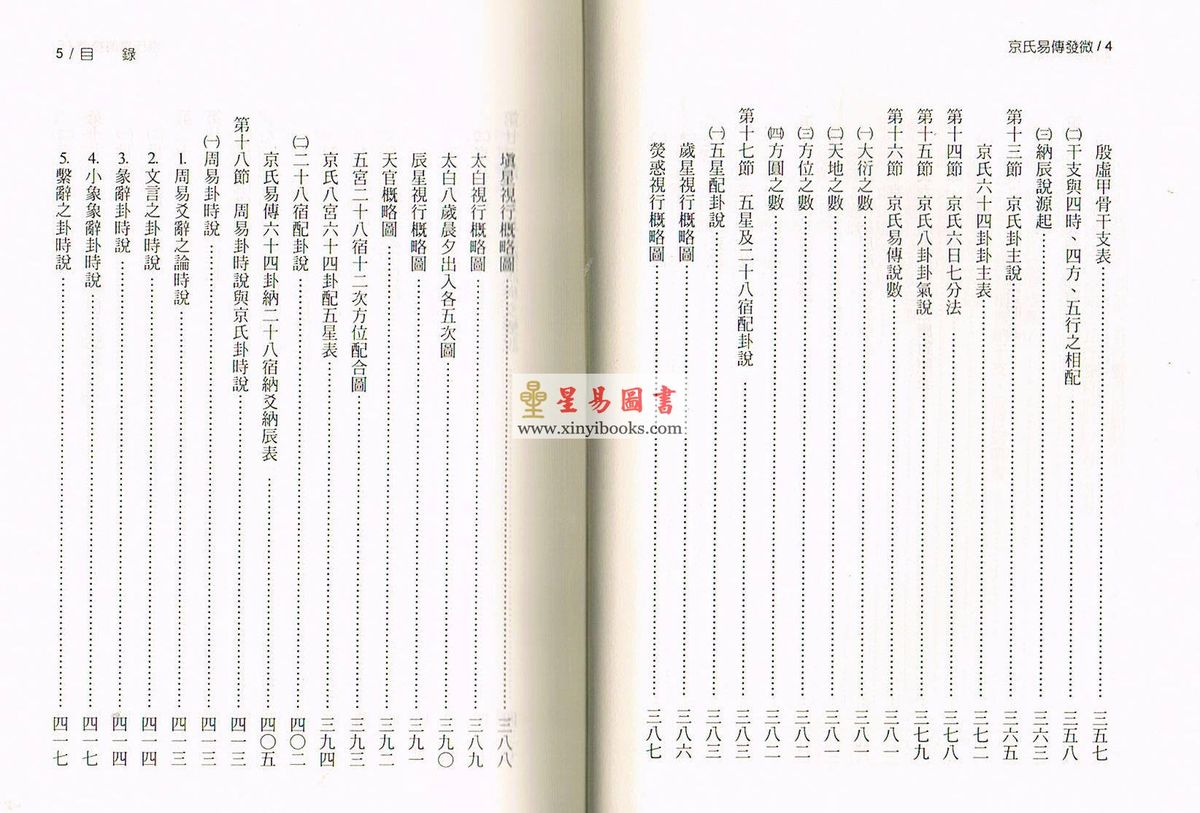 京氏易傳發微/4
殷虛甲骨干支表……三五七
㈡干支與四時、四方、五行之相配……三五八
㈢納辰說源起……三六三
第十三節　京氏卦主說……三六五
京氏六十四卦卦主表……三七二
第十四節　京氏六日七分法……三七八
第十五節　京氏八卦卦氣說……三七九
第十六節　京氏易傳說數……三八一
㈠大衍之數……三八一
㈡天地之數……三八一
㈢方位之數……三八二
㈣方圓之數……三八二
第十七節　五星及二十八宿配卦說……三八三
㈠五星配卦說……三八三
歲星視行概略圖……三八六
熒惑視行概略圖……三八七
5/目　錄
塡星視行概略圖……三八八
太白視行概略圖……三八九
太白八歲晨夕出入各五次圖……三九〇
辰星視行概略圖……三九一
天官概略圖……三九二
五宮二十八宿十二次方位配合圖……三九三
京氏八宮六十四卦配五星表……三九四
㈡二十八宿配卦說……四〇二
京氏易傳六十四卦納二十八宿納爻納辰表……四〇五
第十八節　周易卦時說與京氏卦時說……四一三
㈠周易卦時說……四一三
1.周易爻辭之論時說……四一三
2.文言之卦時說……四一四
3.彖辭卦時說……四一四
4.小象象辭卦時說……四一七
5.繫辭之卦時說……四一七
星易圖書
www.xinyibooks.com